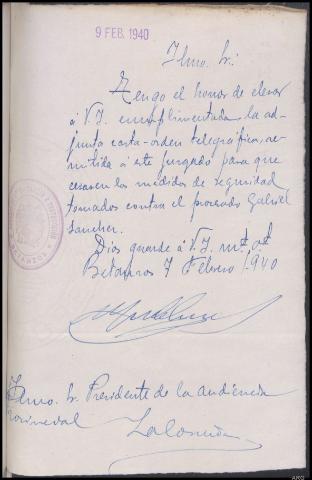 9 FEB. 1940
Ilmo. Sr.:
Tengo el honor de elevar
á V.I. cumplimentada la ad-
junta carta-orden telegráfica, re-
mitida á este Juzgado para que
cesasen las medidas de seguridad
tomadas contra el procesado Gabriel
Sanchez.
Dios guarde á V.I. mº aº
Betanzos 7 Febrero 1940
Ilmo. Sr. Presidente de la Audiencia
Provincial
La Coruña